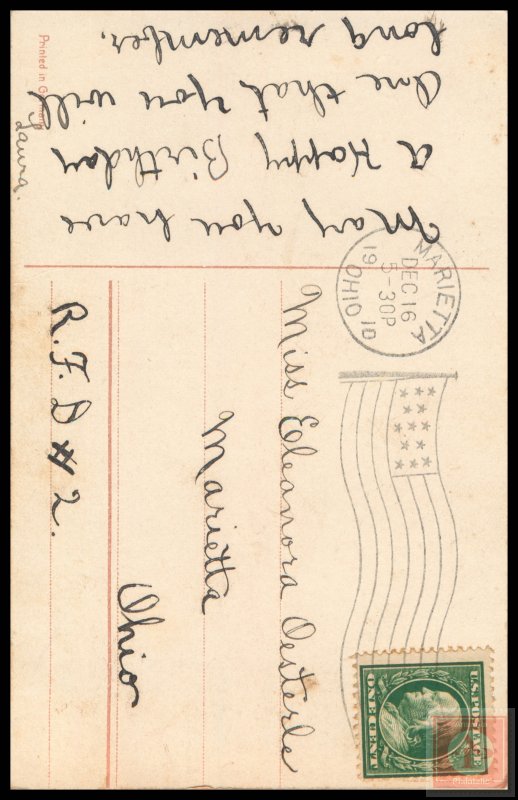 May you have
a Happy Birthday
One that you will
long remember.
Laura.
Printed in Germany
MARIETTA
DEC 16
5-30P
1910
OHIO
Miss Eleanora Oesterle
Marietta
Ohio
R.F.D # 2.
U.S. POSTAGE
ONE CENT
Philatelic